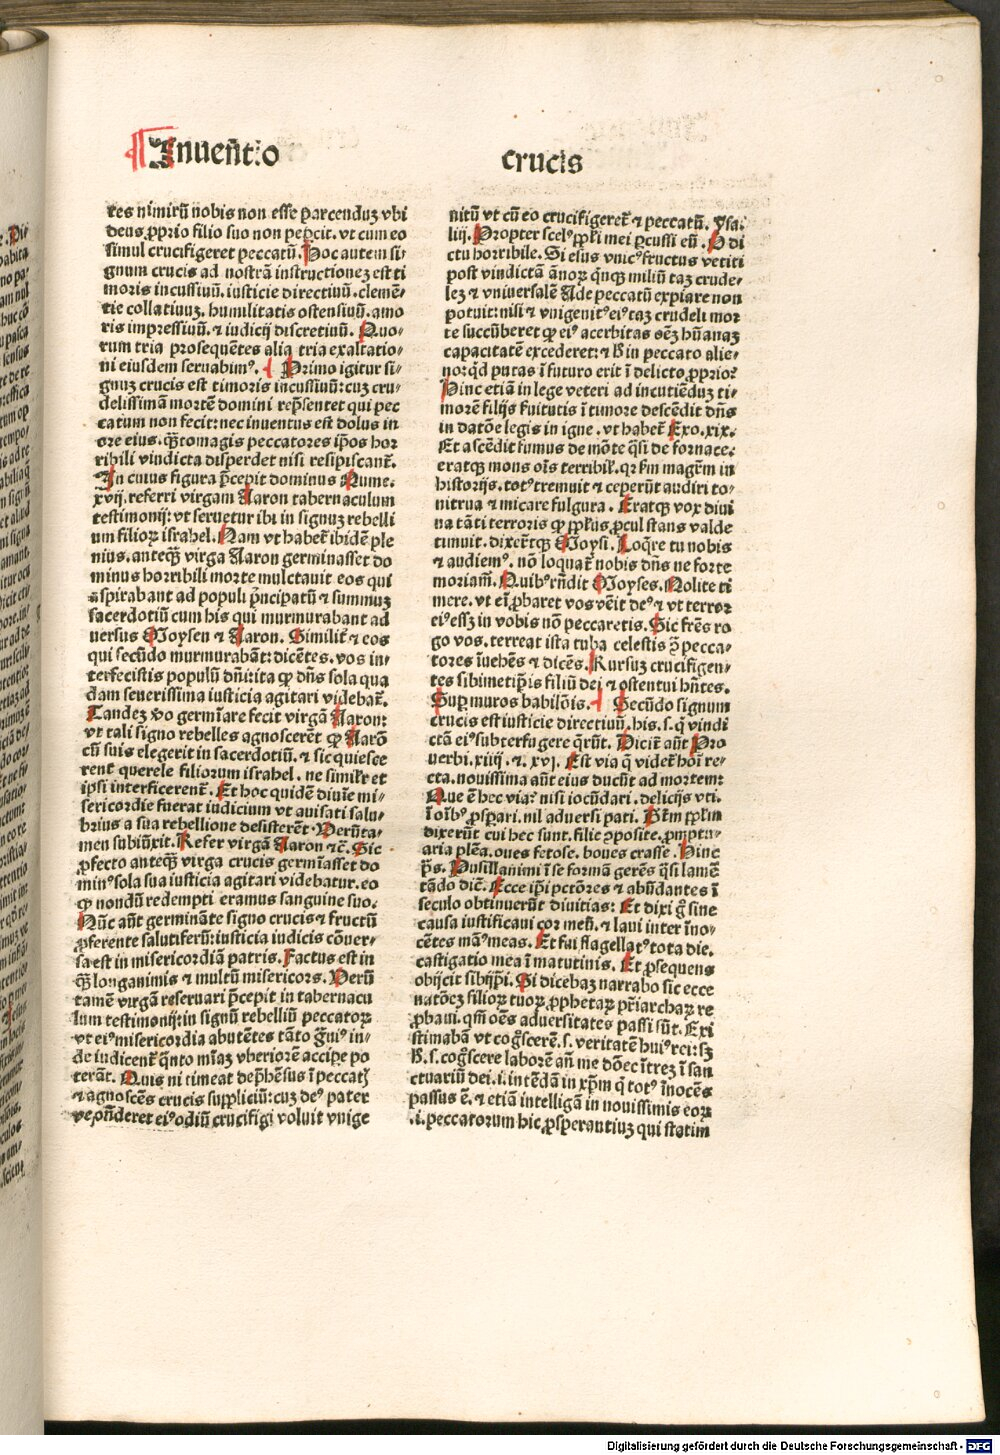 Inuen̄tio crucis
tes nimirū nobis non esse parcenduʒ vbi
deus ꝓprio filio suo non peꝑcit. vt cum eo
simul crucifigeret peccatū. Hoc autem si⸗
gnum crucis ad nostrā instructioneʒ est ti
moris incussiuū. iusticie directiuū. clemē⸗
tie collatiuuʒ. humilitatis ostensiuū. amo
ris impressiuū. ⁊ iudicij discretiuū. Quo⸗
rum tria prosequētes alia tria exaltatio⸗
ni eiusdem seruabimꝰ. Primo igitur si⸗
gnuʒ crucis est timoris incussiuū: cuʒ cru⸗
delissimā mortē domini rep̄sentet qui pec
catum non fecit: nec inuentus est dolus in
ore eius. q̄ꝫtomagis peccatores ip̄os hor
ribili vindicta disperdet nisi resipiscant̄.
In cuius figura p̄cepit dominus Nume.
xvij. referri virgam Aaron tabernaculum
testimonij: vt seruetur ibi in signuʒ rebelli
um filioꝝ israhel. Nam vt habet̄ ibidē ple
nius. anteq̄ꝫ virga Aaron germinasset do
minus horribili morte mulctauit eos qui
aspirabant ad populi p̄ncipatū ⁊ summuʒ
sacerdotiū cum his qui murmurabant ad
uersus Moysen ⁊ Aaron. Similit̄ ⁊ eos
qui secūdo murmurabāt: dicētes. vos in⸗
terfecistis populū dn̄i: ita ꝙ dn̄s sola qua
dam seuerissima iusticia agitari videbat̄.
Tandeʒ v̄o germīare fecit virgā Aaron:
vt tali signo rebelles agnoscerēt ꝙ Aarō
cū suis elegerit in sacerdotiū. ⁊ sic quiesce
rent querele filiorum israhel. ne similr̄ et
ipsi interficerent̄. Et hoc quidē diuīe mi⸗
sericordie fuerat iudicium vt auisati salu⸗
brius a sua rebellione desisterēt. Verūta⸗
men subiūxit. Refer virgā Aaron ⁊c̄. Sic
ꝓfecto anteq̄ꝫ virga crucis germīasset do
minꝰ sola sua iusticia agitari videbatur. eo
ꝙ nondū redempti eramus sanguine suo.
Nūc aūt germināte signo crucis ⁊ fructū
ꝓferente salutiferū: iusticia iudicis cōuer⸗
sa est in misericordiā patris. Factus est in
q̄ꝫ longanimis ⁊ multū misericors. Verū
tamē virgā reseruari p̄cepit in tabernacu
lum testimonij: in signū rebelliū peccatoꝝ
vt eiꝰ misericordia abutētes tāto g̃uiꝰ in⸗
de iudicent̄ q̄nto mīaʒ vberiorē accipe po
terāt. Quis ni timeat dep̄hēsus ī peccatꝭ
⁊ agnoscēs crucis suppliciū: cuʒ deꝰ pater
vt on̄deret eiꝰ odiū crucifigi voluit vnige
nitū vt cū eo crucifigeret̄ ⁊ peccatū. Ysa.
liij. Propter scelꝰ pp̄l̄i mei ꝑcussi eū. O di
ctu horribile. Si esus vnicꝰ fructus vetiti
post vindictā ānoꝝ q̄nqꝫ miliū taʒ crude⸗
leʒ ⁊ vniuersalē Ade peccatū expiare non
potuit: nisi ⁊ vnigenitꝰ eiꝰ taʒ crudeli mor
te succūberet ꝙ eiꝰ acerbitas oēʒ hūanaʒ
capacitatē excederet: ⁊ B in peccato alie⸗
no: qͥd putas ī futuro erit ī delicto ꝓprio?
Hinc etiā in lege veteri ad incutiēduʒ ti⸗
morē filijs ẜuitutis ī timore descēdit dn̄s
in datōe legis in igne. vt habet̄ Exo. xix.
Et ascēdit fumus de mōte q̄si de fornace:
eratqꝫ mons oīs terribil̄. qꝛ ẜm magr̄m in
historijs. totꝰ tremuit ⁊ ceperūt audiri to⸗
nitrua ⁊ micare fulgura. Eratqꝫ vox diui
na tāti terroris ꝙ pp̄l̄us ꝓcul stans valde
timuit. dixerūtqꝫ Moysi. Loq̄re tu nobis
⁊ audiemꝰ. nō loquat̄ nobis dn̄s ne forte
moriam̄. Quibꝰ rn̄dit Moyses. Nolite ti
mere. vt eī ꝓbaret vos vēit deꝰ ⁊ vt terror
eiꝰ essʒ in vobis nō peccaretis. Sic fr̄es ro
go vos. terreat ista tuba celestis ꝯ̄ pecca⸗
tores īuehēs ⁊ dicēs. Rursuʒ crucifigen⸗
tes sibimetip̄is filiū dei ⁊ ostentui hn̄tes.
Suꝑ muros babilōis. Secūdo signum
crucis est iusticie directiuū. his. s. q̇ vindi
ctā eiꝰ subterfugere q̄rūt. Dicit̄ aūt Pro
uerbi. xiiij. ⁊. xvj. Est via q̄ videt̄ hoī re⸗
cta. nouissima aūt eius ducūt ad mortem:
Que ē hec via? nisi iocūdari. delicijs vti.
ī oībꝰ ꝓsꝑari. nil aduersi pati. Btm̄ pp̄l̄m
dixerūt cui hec sunt. filie cōposite. ꝓmptu⸗
aria plēa. oues fetose. boues crasse. Hinc
p̄s. Pusillanimi ī se formā gerēs q̄si lamē
tādo dic̄. Ecce ip̄i pctōres ⁊ abūdantes ī
seculo obtinuerūt diuitias: Et dixi g̊ sine
causa iustificaui cor meū. ⁊ laui inter īno⸗
cētes māꝰ meas. Et fui flagellatꝰ tota die.
castigatio mea ī matutinis. Et ꝓsequens
obijcit sibijp̄i. Si dicebaʒ narrabo sic ecce
natōeʒ filioꝝ tuoꝝ. ꝓphetaꝝ pr̄iarchaꝝ re
ꝓbaui. qm̄ oēs aduersitates passi sūt. Exi
stimabā vt cog̊scerē. s. veritatē huiꝰ rei: sʒ
B. s. cog̊scere laborē añ me dōec ītreʒ ī san
ctuariū dei. i. intēdā in xp̄m q̇ totꝰ īnocēs
passus ē. ⁊ etiā intelligā in nouissimis eoꝝ
.i. peccatorum hic ꝓsperantiuʒ qui statim
Digitalisierung gefördert durch die Deutsche Forschungsgemeinschaft - DFG